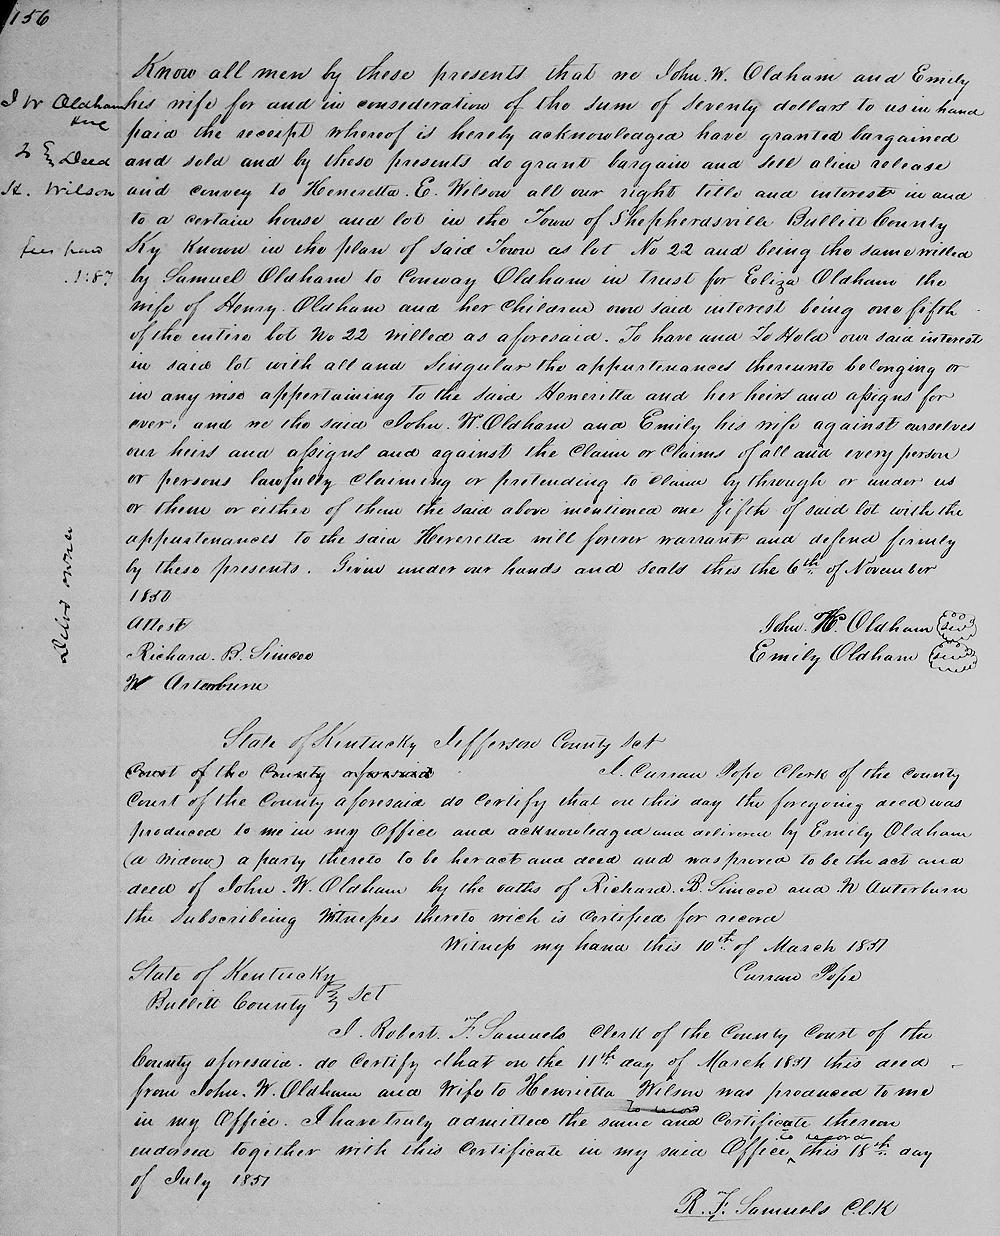 156
Know all men by these presents that we John. W. Oldham and Emily
his wife for and in consideration of the sum of seventy dollars to us in hand
paid the receipt whereof is hereby acknowledged have granted bargained
and sold and by these presents do grant bargain and sell alien release
and convey to Heneretta. E. Wilson all our right title and interest in and
to a certain house and lot in the Town of Shepherdsville Bullitt County
Ky known in the plan of said Town as lot No 22 and being the same willed
by Samuel Oldham to Conway Oldham in trust for Eliza Oldham the
wife of Henry Oldham and her Children our said interest being one fifth
of the entire lot No 22 willed as aforesaid. To have and To Hold our said interest
in said lot with all and Singular the appurtenances thereunto belonging or
in any wise appertaining to the said Heneretta and her heirs and assigns for
ever. and we the said John. W. Oldham and Emily his wife against ourselves
our heirs and assigns and against the Claim or Claims of all and every person
or persons lawfully claiming or pretending to claim by through or under us
or them or either of them the said above mentioned one fifth of said lot with the
appurtenances to the said Heneretta will forever warrant and defend firmly
by these presents. Given under our hands and seals this the 6th of November
1850
Attest
Richard. B. Simcoe
W Arterburn
John. W. Oldham
Emily Oldham
J W Oldham
to Deed
H. Wilson
fees paid
1.87
Deld owner
State of Kentucky Jefferson County Sct
Court of the County aforesaid I. Curran Pope Clerk of the county
Court of the County aforesaid do certify that on this day the foregoing deed was
produced to me in my Office and acknowledged and delivered by Emily Oldham
(a widow) a party thereto to be her act and deed and was proved to be the act and
deed of John. W. Oldham by the oaths of Richard. B. Simcoe and W Auterburn
the Subscribeing Witnesses thereto wich is Certified for record
Witness my hand this 10th of March 1851
Curran Pope
State of Kentucky
Bullitt County Sct
I. Robert. F. Samuels Clerk of the County Court of the
County aforesaid. do Certify that on the 11th day of March 1851 this deed
from John. W. Oldham and Wife to Henrietta Wilson was produced to me
in my Office. I have truly admitted the same to record and Certificate thereon
endorsed together with this Certificate in my said Office to record this 18th day
of July 1851
R. F. Samuels Cl.K